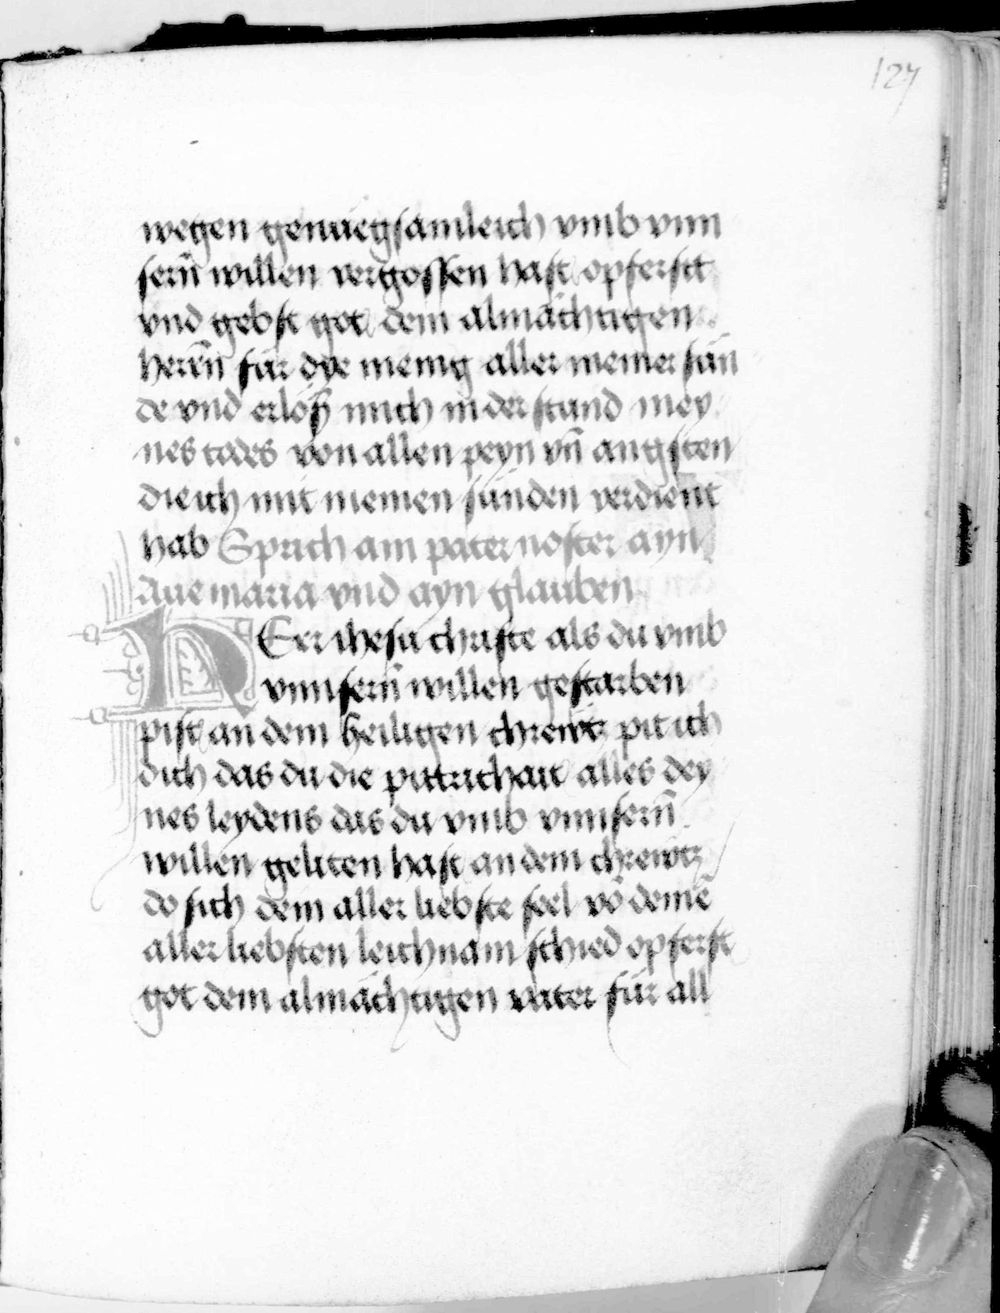 127
wegen genuegsamleich vmb vnn
sern̄ willen vergossen hast opferst
vnd gebst got dem almächtigen
herrn̄ für dye menig aller meiner sün
de vnd erlöß mich in der stund mey
nes todes von allen peyn vn̄ angsten
die ich mit meinen sünden verdient
hab Sprich ain pater noster ayn
Aue maria vnd ayn glauben
HEr ihesu christe als du vmb
vnnsern̄ willen gestarben
pist an dem heiligen chrewtz pit ich
dich das du die pittrichait alles dey
nes leydens das du vmb vnnsern̄
willen geliten hast an dem chrewtz
do sich dein aller liebste seel vō deinē
aller liebsten leichnam schied opferst
got dem almächtigen vater für all